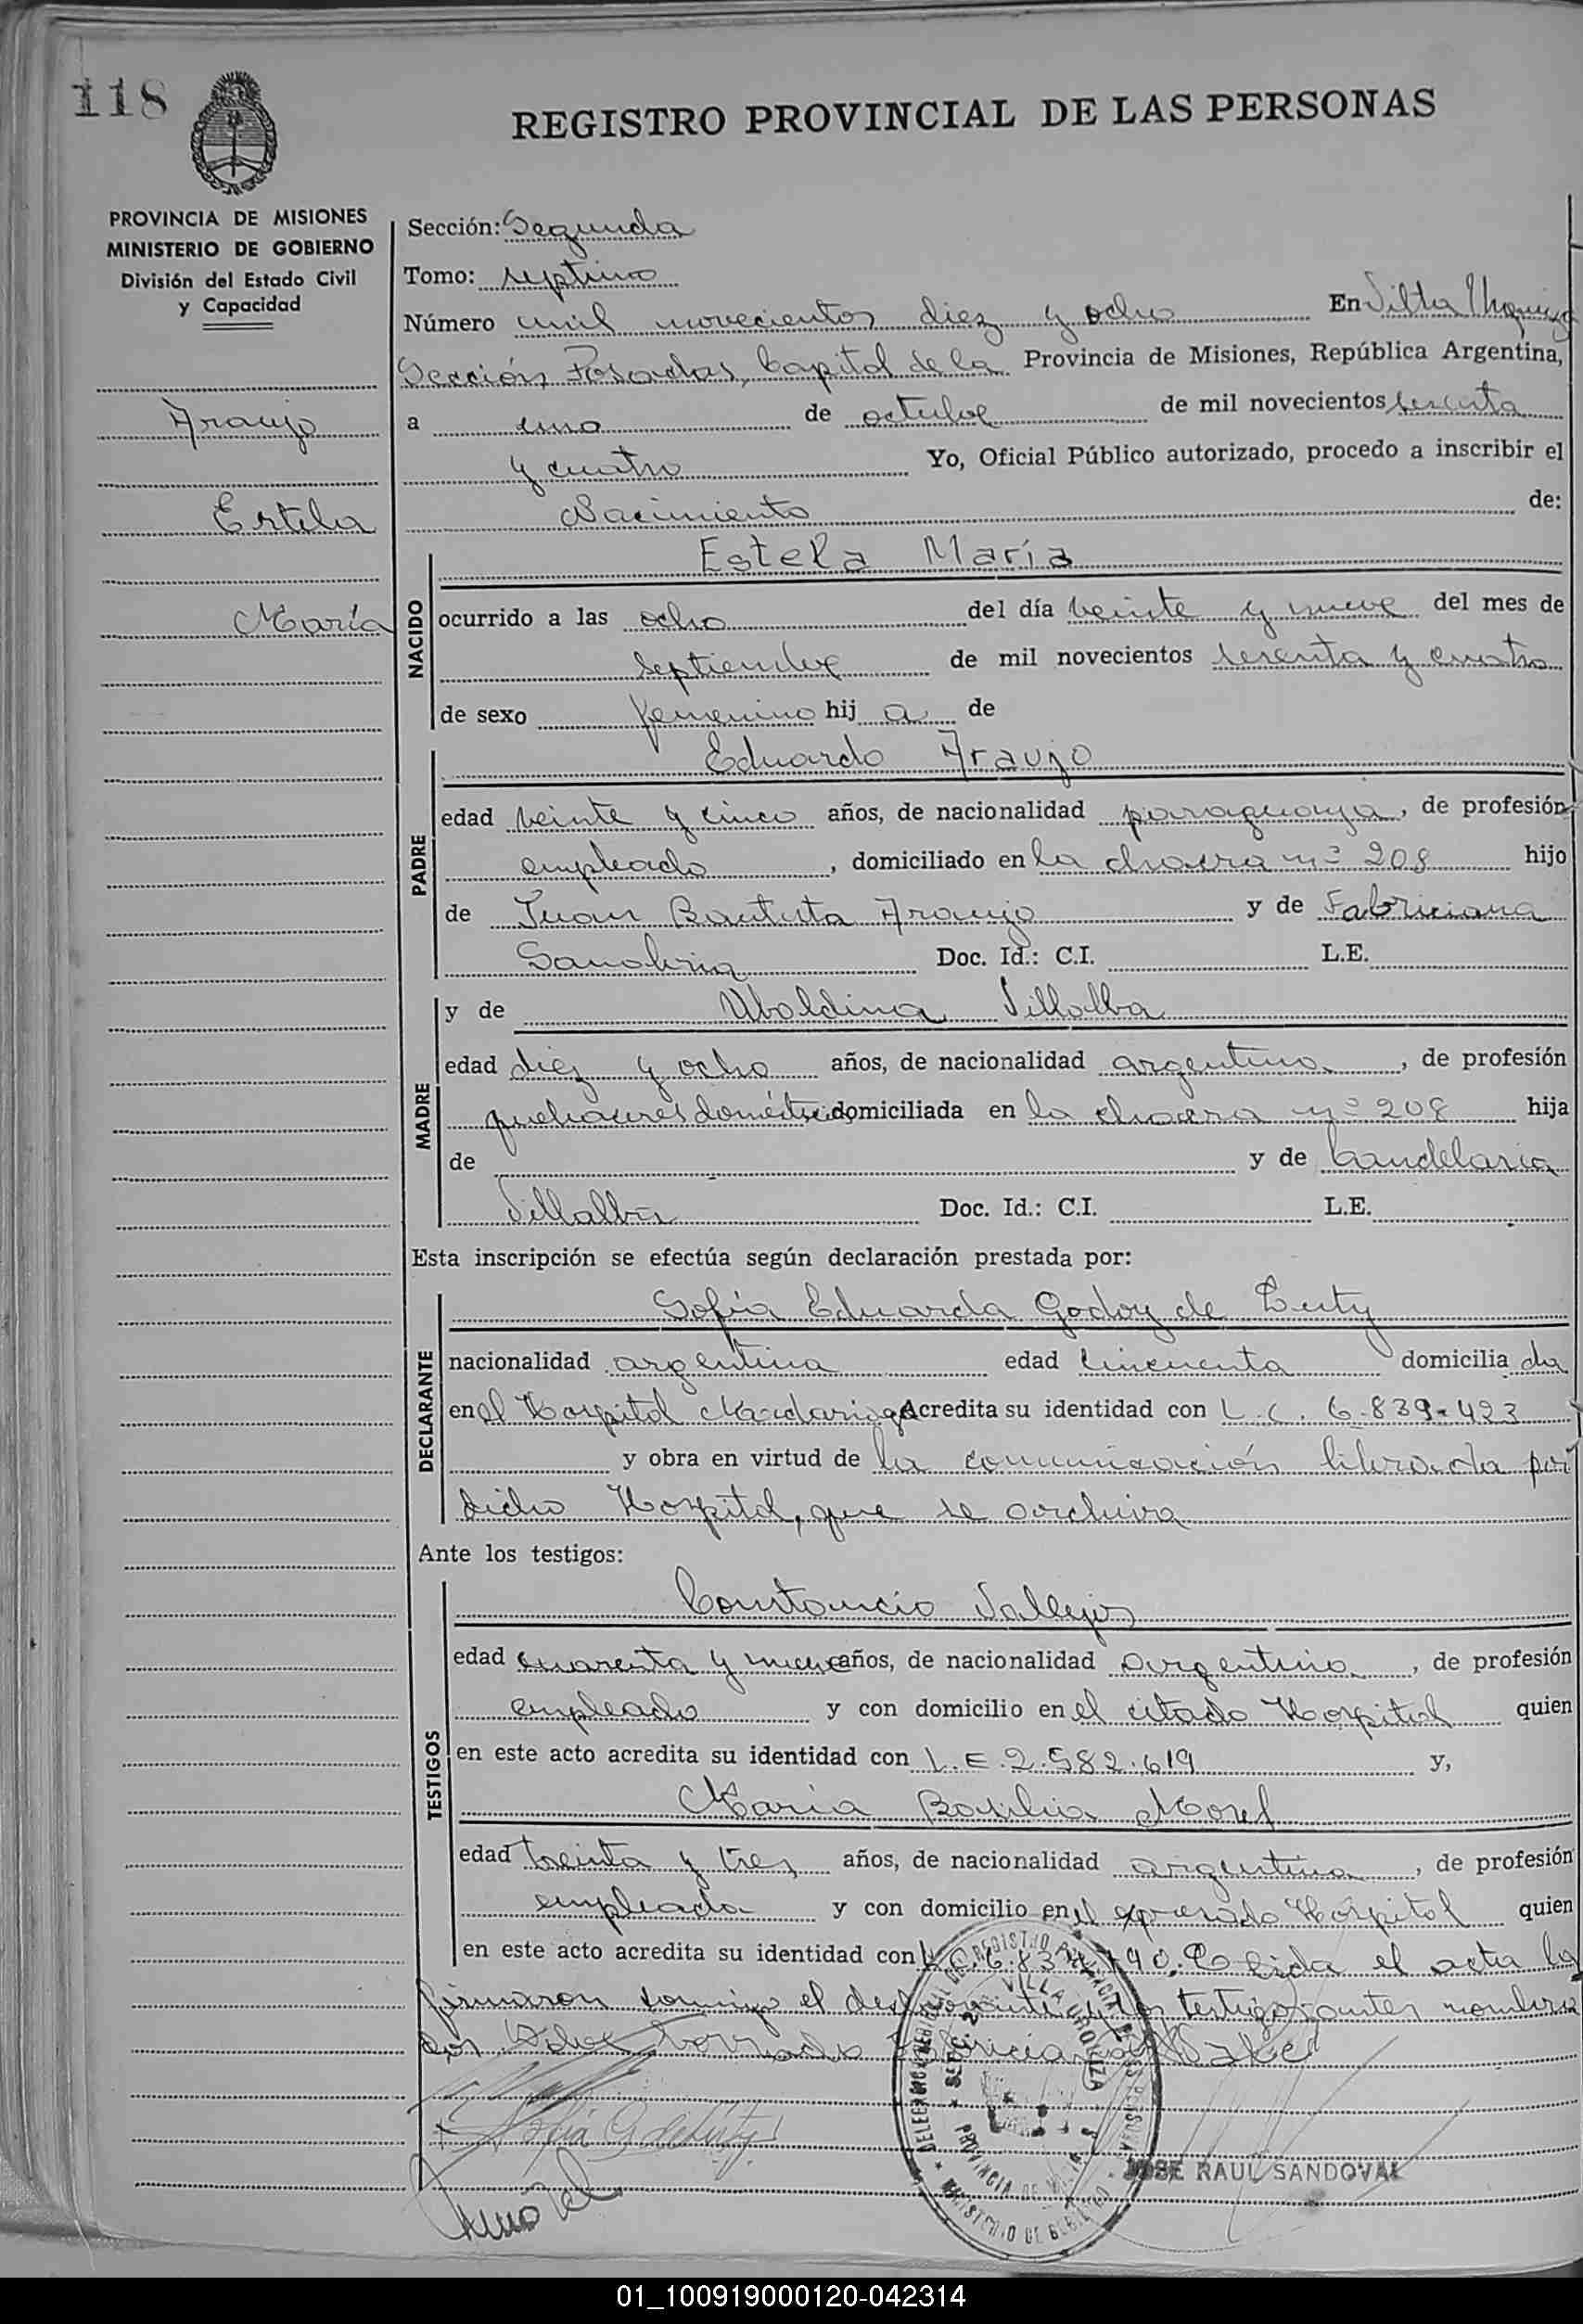 118
REGISTRO PROVINCIAL DE LAS PERSONAS
PROVINCIA DE MISIONES
MINISTERIO DE GOBIERNO
División del Estado Civil
y Capacidad
Araujo
Estela
María
Sección: Segunda
Tomo: septimo
Número mil novecientos diez y ocho En Villa Urquiza
Sección Posadas, Capital de la Provincia de Misiones, República Argentina,
a uno de octubre de mil novecientos sesenta
y cuatro Yo, Oficial Público autorizado, procedo a inscribir el
Nacimiento de:
NACIDO
Estela María
ocurrido a las ocho del día veinte y nueve del mes de
septiembre de mil novecientos sesenta y cuatro
de sexo femenino hij a de
PADRE
Eduardo Araujo
edad veinte y cinco años, de nacionalidad paraguaya, de profesión
empleado, domiciliado en la chacra nº 208 hijo
de Juan Bautista Araujo y de Fabriciana
Sanabria Doc. Id.: C.I. L.E.
MADRE
y de Ubaldina Villalba
edad diez y ocho años, de nacionalidad argentina, de profesión
quehaceres domésticos domiciliada en la chacra nº 208 hija
de y de Candelaria
Villalba Doc. Id.: C.I. L.E.
Esta inscripción se efectúa según declaración prestada por:
DECLARANTE
Sofía Eduarda Godoy de
nacionalidad argentina edad cincuenta domicilia da
en el Hospital Madariaga Acredita su identidad con L.C. 6.839.423
y obra en virtud de la comunicación librada por
dicho Hospital, que se archiva
Ante los testigos:
TESTIGOS
Constancio Vallejos
edad cuarenta y nueve años, de nacionalidad argentina, de profesión
empleado y con domicilio en el citado Hospital quien
en este acto acredita su identidad con L.E. 2.582.619 y,
María Basilia Morel
edad treinta y tres años, de nacionalidad argentina, de profesión
empleada y con domicilio en el expresado Hospital quien
en este acto acredita su identidad con Leida el acta la
firmaron conmigo el declarante y los testigos antes nombra
dos Sobre borrado Fabriciana Vale
VILLA URQUIZA
JOSE RAUL SANDOVAL
01_100919000120-042314